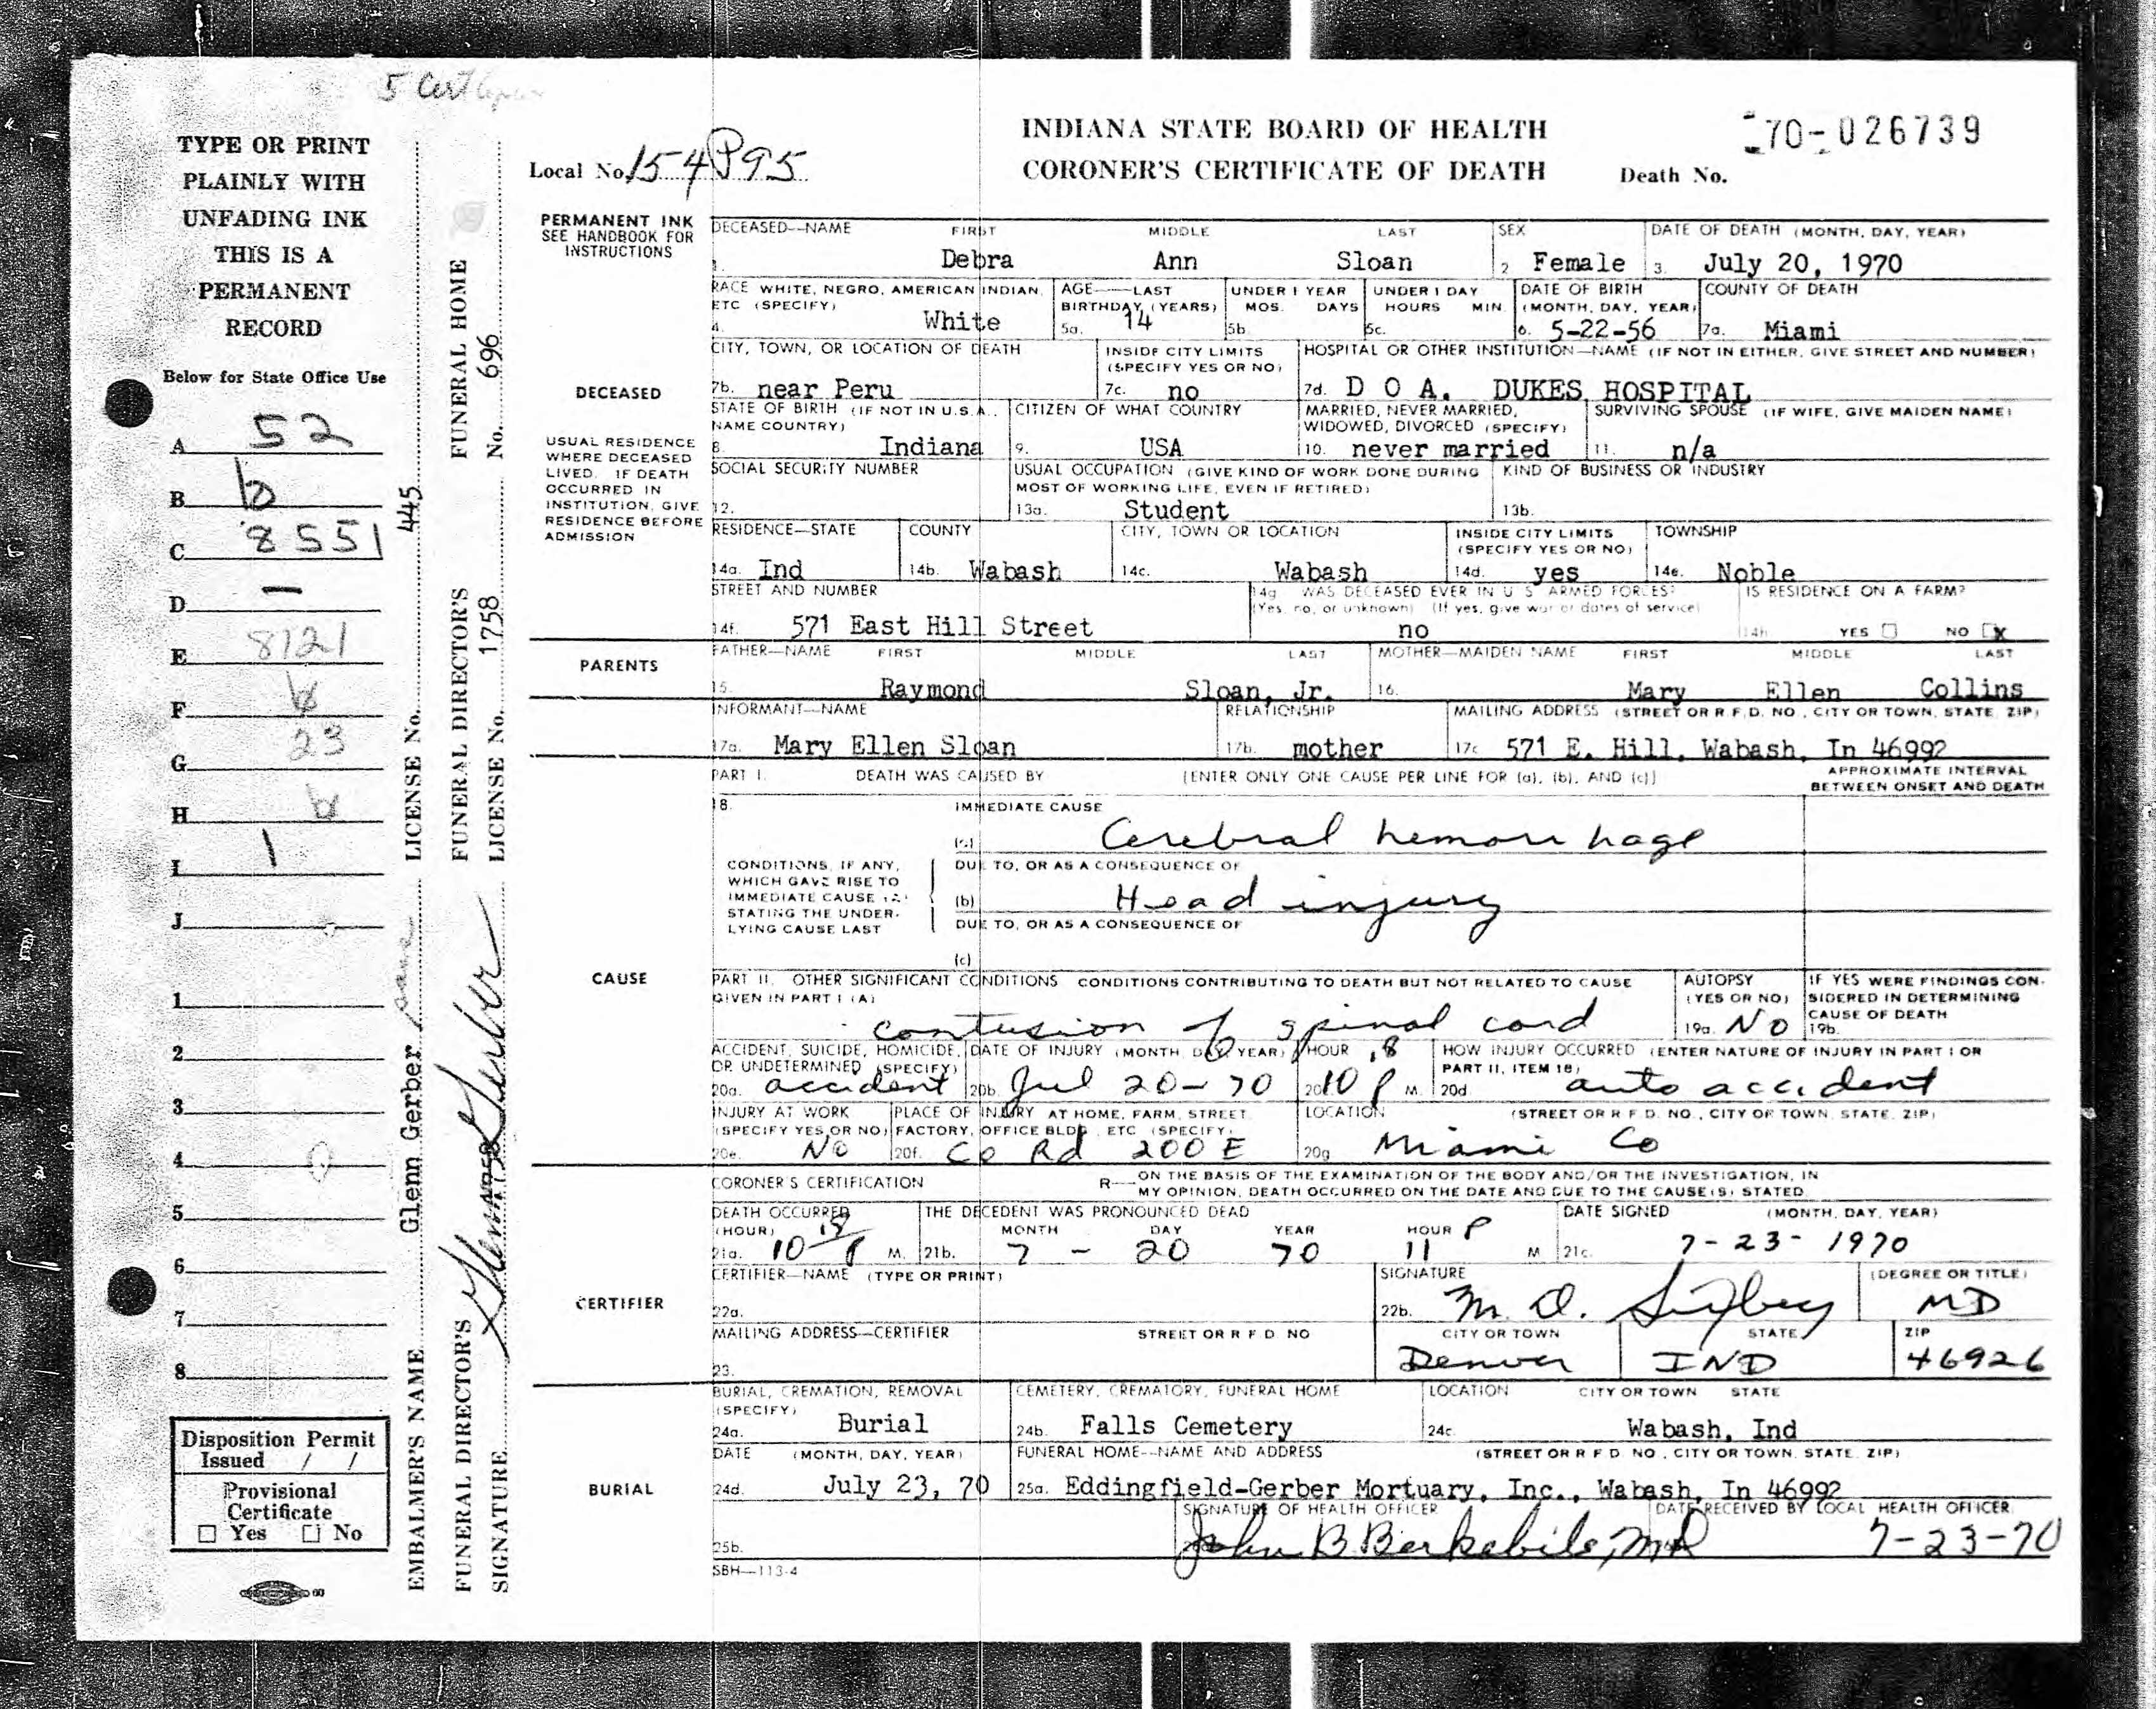 5 Cert
TYPE OR PRINT
PLAINLY WITH
UNFADING INK
THIS IS A
PERMANENT
RECORD
Below for State Office Use
A 52
B b
C 8551
D —
E 8121
F b
G 23
H b
I 1
J
1
2
3
4
5
6
7
8
Disposition Permit
Issued / /
Provisional
Certificate
☐ Yes ☐ No
EMBALMER'S NAME Glenn Gerber same LICENSE No. 445
FUNERAL DIRECTOR'S FUNERAL DIRECTOR'S FUNERAL HOME
SIGNATURE LICENSE No. 1758 No. 696
INDIANA STATE BOARD OF HEALTH
CORONER'S CERTIFICATE OF DEATH
Local No. 154 P95
Death No. 70-026739
PERMANENT INK
SEE HANDBOOK FOR
INSTRUCTIONS
DECEASED—NAME FIRST MIDDLE LAST SEX DATE OF DEATH (MONTH, DAY, YEAR)
1. Debra Ann Sloan 2. Female 3. July 20, 1970
RACE WHITE, NEGRO, AMERICAN INDIAN, AGE—LAST UNDER 1 YEAR UNDER 1 DAY DATE OF BIRTH COUNTY OF DEATH
ETC (SPECIFY) BIRTHDAY (YEARS) MOS. DAYS HOURS MIN. (MONTH, DAY, YEAR)
4. White 5a. 14 5b. 5c. 6. 5-22-56 7a. Miami
CITY, TOWN, OR LOCATION OF DEATH INSIDE CITY LIMITS HOSPITAL OR OTHER INSTITUTION—NAME (IF NOT IN EITHER, GIVE STREET AND NUMBER)
(SPECIFY YES OR NO)
DECEASED
7b. near Peru 7c. no 7d. D O A. DUKES HOSPITAL
STATE OF BIRTH (IF NOT IN U.S.A., CITIZEN OF WHAT COUNTRY MARRIED, NEVER MARRIED, SURVIVING SPOUSE (IF WIFE, GIVE MAIDEN NAME)
NAME COUNTRY) WIDOWED, DIVORCED (SPECIFY)
8. Indiana 9. USA 10. never married 11. n/a
USUAL RESIDENCE
WHERE DECEASED
LIVED. IF DEATH
OCCURRED IN
INSTITUTION, GIVE
RESIDENCE BEFORE
ADMISSION
SOCIAL SECURITY NUMBER USUAL OCCUPATION (GIVE KIND OF WORK DONE DURING KIND OF BUSINESS OR INDUSTRY
MOST OF WORKING LIFE, EVEN IF RETIRED)
12. 13a. Student 13b.
RESIDENCE—STATE COUNTY CITY, TOWN OR LOCATION INSIDE CITY LIMITS TOWNSHIP
(SPECIFY YES OR NO)
14a. Ind 14b. Wabash 14c. Wabash 14d. yes 14e. Noble
STREET AND NUMBER 14g WAS DECEASED EVER IN U S ARMED FORCES? IS RESIDENCE ON A FARM?
(Yes, no, or unknown) (If yes, give war or dates of service)
14f. 571 East Hill Street no 14h YES ☐ NO ☒
PARENTS
FATHER—NAME FIRST MIDDLE LAST MOTHER—MAIDEN NAME FIRST MIDDLE LAST
15. Raymond Sloan, Jr. 16. Mary Ellen Collins
INFORMANT—NAME RELATIONSHIP MAILING ADDRESS (STREET OR R.F.D. NO., CITY OR TOWN, STATE, ZIP)
17a. Mary Ellen Sloan 17b. mother 17c 571 E. Hill, Wabash, In 46992
PART I. DEATH WAS CAUSED BY [ENTER ONLY ONE CAUSE PER LINE FOR (a), (b), AND (c)] APPROXIMATE INTERVAL
BETWEEN ONSET AND DEATH
18. IMMEDIATE CAUSE
(a) Cerebral hemorrhage
CONDITIONS, IF ANY,
WHICH GAVE RISE TO
IMMEDIATE CAUSE (a)
STATING THE UNDER-
LYING CAUSE LAST
DUE TO, OR AS A CONSEQUENCE OF
(b) Head injury
DUE TO, OR AS A CONSEQUENCE OF
(c)
CAUSE
PART II. OTHER SIGNIFICANT CONDITIONS CONDITIONS CONTRIBUTING TO DEATH BUT NOT RELATED TO CAUSE AUTOPSY IF YES WERE FINDINGS CON-
GIVEN IN PART I (A) (YES OR NO) SIDERED IN DETERMINING
CAUSE OF DEATH
contusion of spinal cord 19a. NO 19b.
ACCIDENT, SUICIDE, HOMICIDE, DATE OF INJURY (MONTH, DAY, YEAR) HOUR HOW INJURY OCCURRED (ENTER NATURE OF INJURY IN PART I OR
OR UNDETERMINED (SPECIFY) PART II, ITEM 18)
20a. accident 20b. Jul 20-70 20c 10 18 P M. 20d. auto accident
INJURY AT WORK PLACE OF INJURY AT HOME, FARM, STREET, LOCATION (STREET OR R.F.D. NO., CITY OR TOWN, STATE, ZIP)
(SPECIFY YES OR NO) FACTORY, OFFICE BLDG., ETC (SPECIFY)
20e. No 20f. Co Rd 200 E 20g Miami Co
CORONER'S CERTIFICATION R— ON THE BASIS OF THE EXAMINATION OF THE BODY AND/OR THE INVESTIGATION, IN
MY OPINION, DEATH OCCURRED ON THE DATE AND DUE TO THE CAUSE(S) STATED
DEATH OCCURRED THE DECEDENT WAS PRONOUNCED DEAD DATE SIGNED (MONTH, DAY, YEAR)
(HOUR) MONTH DAY YEAR HOUR
21a. 10 18 P M. 21b. 7 - 20 70 11 P M 21c. 7-23-1970
CERTIFIER—NAME (TYPE OR PRINT) SIGNATURE (DEGREE OR TITLE)
22a. 22b. M. D. MD
CERTIFIER
MAILING ADDRESS—CERTIFIER STREET OR R.F.D. NO CITY OR TOWN STATE ZIP
23. Denver IND 46926
BURIAL, CREMATION, REMOVAL CEMETERY, CREMATORY, FUNERAL HOME LOCATION CITY OR TOWN STATE
(SPECIFY)
24a. Burial 24b. Falls Cemetery 24c. Wabash, Ind
DATE (MONTH, DAY, YEAR) FUNERAL HOME--NAME AND ADDRESS (STREET OR R.F.D. NO., CITY OR TOWN, STATE, ZIP)
BURIAL
24d. July 23, 70 25a. Eddingfield-Gerber Mortuary, Inc., Wabash, In 46992
SIGNATURE OF HEALTH OFFICER DATE RECEIVED BY LOCAL HEALTH OFFICER
25b. John B Berkebile, MD 7-23-70
SBH—113-4